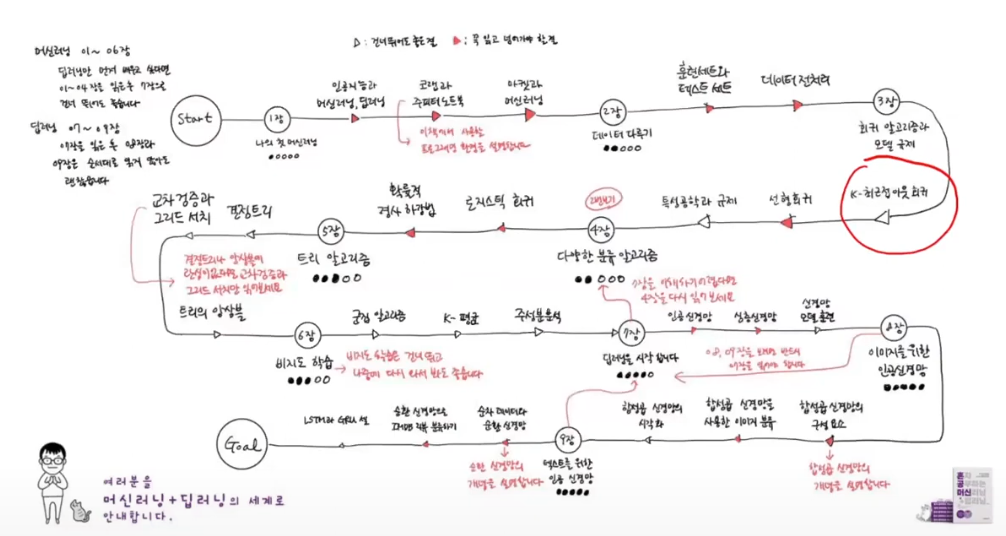 △: 건너뛰어도 좋은 절 ▶: 꼭 읽고 넘어가야 할 절
머신러닝 01~06장
딥러닝만 먼저 배우고 싶다면
01~04장을 읽은 후 7장으로
건너 뛰어도 좋습니다
딥러닝 07~09장
07장을 읽은 후 08장과
09장은 순서대로 읽지 않아도
괜찮습니다
Start
1장
나의 첫 머신러닝
인공지능과
머신러닝, 딥러닝
코랩과
주피터 노트북
이 책에서 사용할
프로그래밍 환경을 설명합니다
마켓과
머신러닝
2장
데이터 다루기
훈련 세트와
테스트 세트
데이터 전처리
3장
회귀 알고리즘과
모델 규제
K-최근접 이웃 회귀
선형 회귀
특성 공학과 규제
4장
다양한 분류 알고리즘
로지스틱 회귀
확률적
경사 하강법
5장
트리 알고리즘
결정 트리
교차 검증과
그리드 서치
결정 트리나 앙상블에
관심이 없다면 교차 검증과
그리드 서치만 읽어보세요
트리의 앙상블
6장
비지도 학습
비지도 학습은 건너 뛰고
나중에 다시 와서 봐도 좋습니다
군집 알고리즘
K-평균
주성분 분석
7장
딥러닝을 시작합니다
7장을 이해하기 어렵다면
4장을 다시 읽어 보세요
인공 신경망
심층 신경망
신경망
모델 훈련
8장
이미지를 위한
인공 신경망
합성곱 신경망의
구성 요소
합성곱 신경망의
개념을 설명합니다
합성곱 신경망을
사용한 이미지 분류
합성곱 신경망의
시각화
9장
텍스트를 위한
인공 신경망
순차 데이터와
순환 신경망
순환 신경망의
개념을 설명합니다
순환 신경망으로
IMDB 리뷰 분류하기
LSTM과 GRU 셀
Goal
여러분을
머신러닝+딥러닝의 세계로
안내합니다.